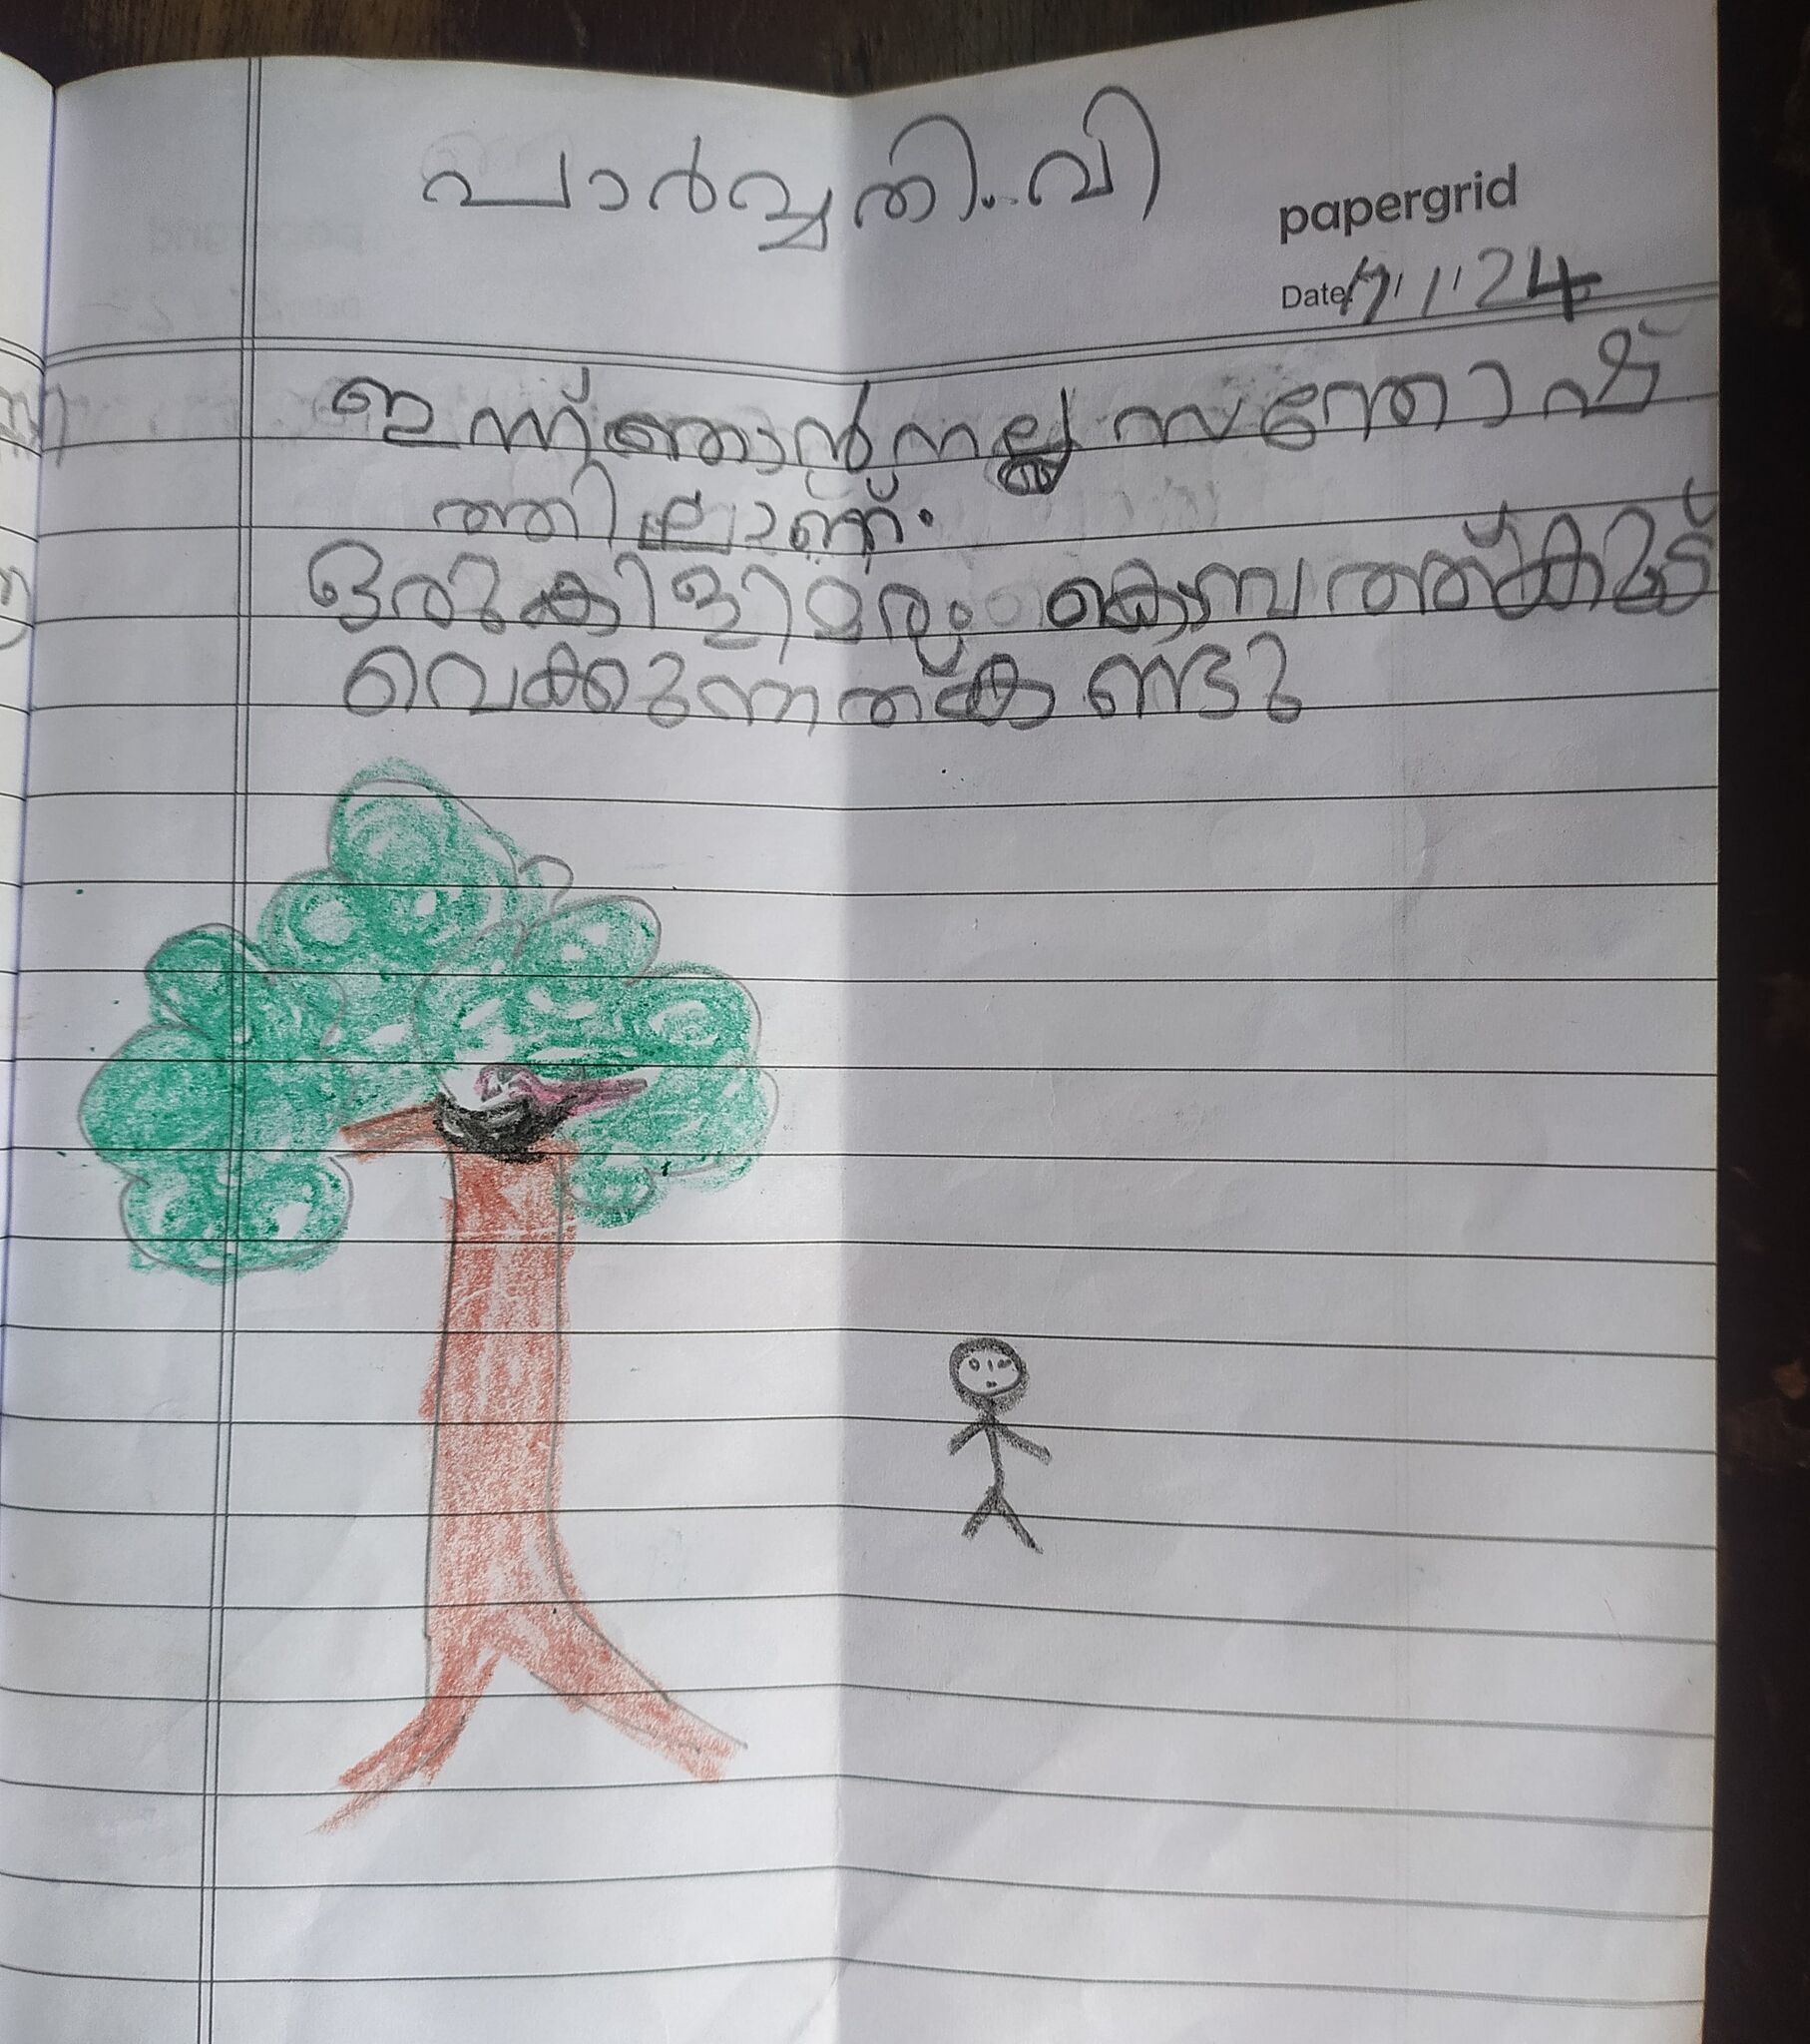 പാർവ്വതി.വി
papergrid
Date 17/1/24
ഇന്ന് ഞാൻ നല്ല സന്തോഷ
ത്തിലാണ്.
ഒരു കിളി മരം കൊമ്പത്ത് കൂട്
വെക്കുന്നത് കണ്ടു